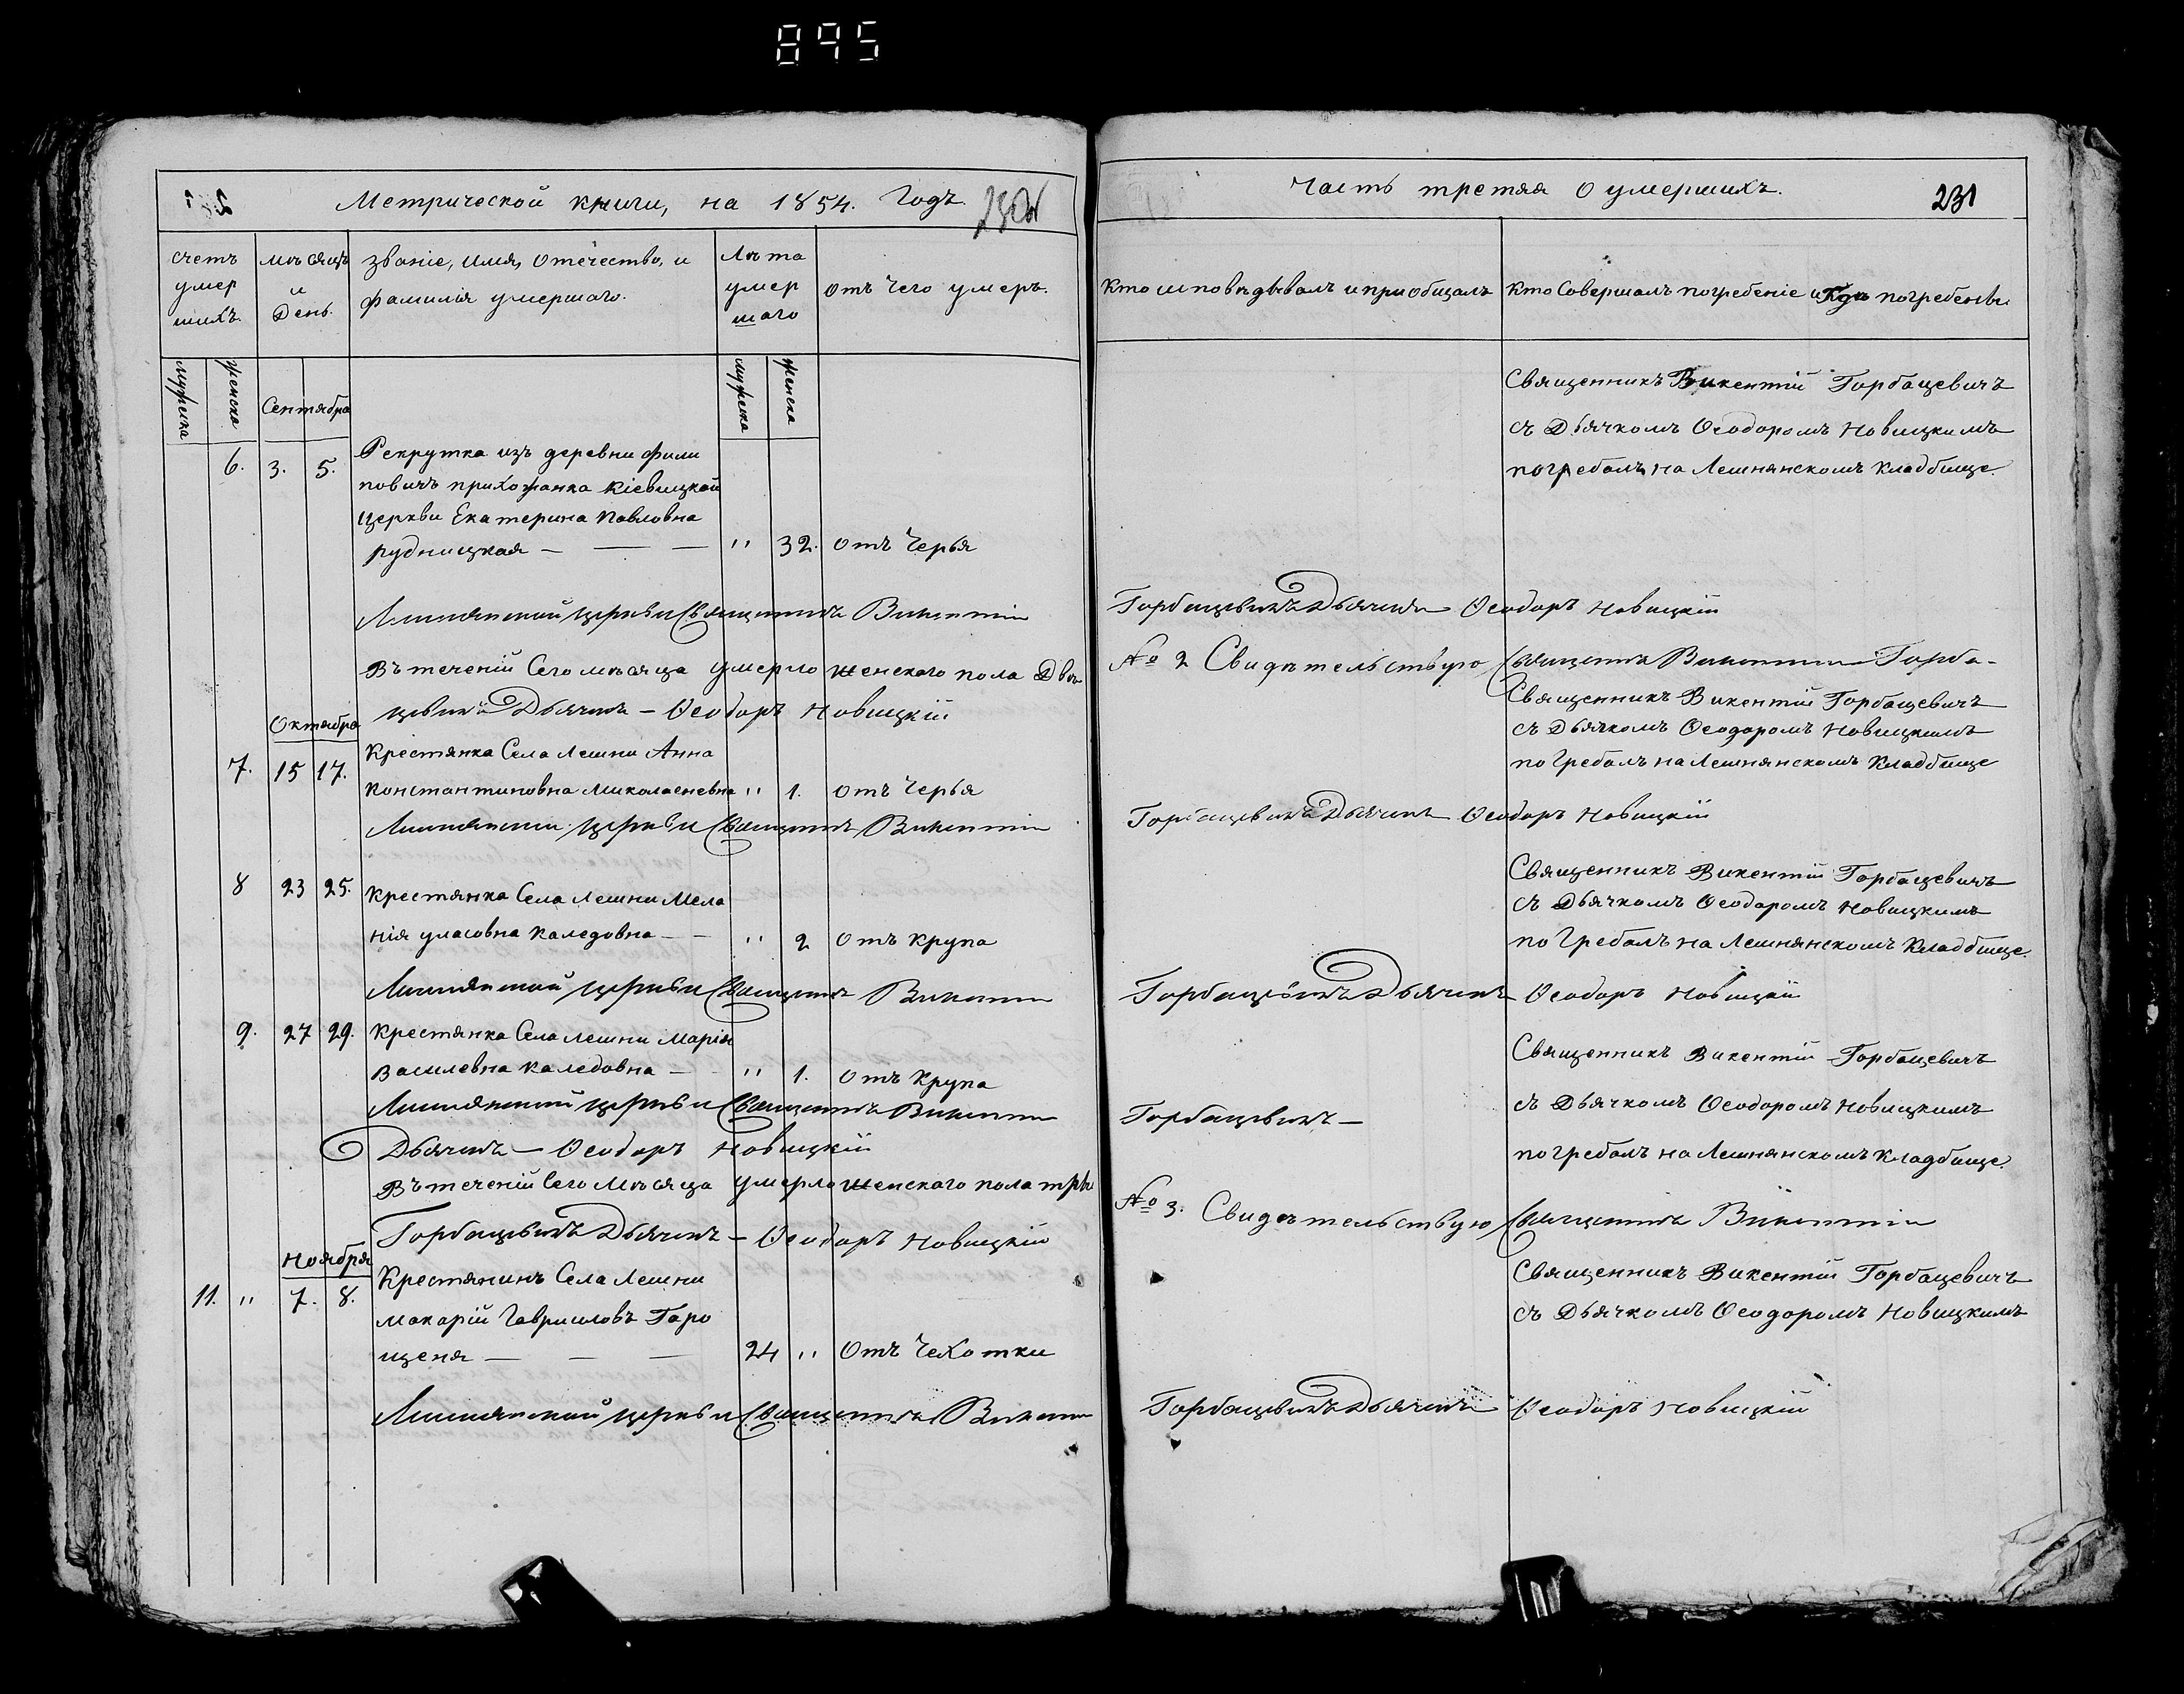 895
Метрической книги, на 1854. Годъ.
счетъ умер шихъ.
мѣсяцъ и День.
званіе, имя, отечество, и фамилія умершаго.
Лѣта умер шаго
отъ чего умеръ.
мужеска
женска
мужеска
женска
Сентября
6. 3. 5.
Рекрутка изъ деревни фили
повичъ прихожанка Кіевицкой
Церкви Екатерина Павловна
рудницкая — — — " 32. отъ Черья
Лешнянской церкви Священникъ Викентій
Въ теченіи Сего мѣсяца умерло женского пола Двѣ
цевичъ Дьячекъ — Ѳеодоръ Новицкій
Октября
7. 15 17.
Крестянка Села Лешни Анна
Константиновна Миколаеневна " 1. отъ Черья
Лешнянской церкви Священникъ Викентій
8 23 25.
Крестянка Села Лешни Мела
нія уласовна Каледовна — " 2 отъ крупа
Лешнянской церкви Священникъ Викентій
9. 27 29.
Крестянка Села Лешни Марія
Василевна Каледовна — " 1. отъ Крупа
Лешнянской церкви Священникъ Викентій
Дьячекъ — Ѳеодоръ Новицкій
Въ теченіи Сего Мѣсяца умерло женского пола три
Горбацевичъ Дьячекъ — Ѳеодоръ Новицкій
Ноября
11. " 7. 8.
Крестянинъ Села Лешни
макарій Гавриловъ Гаро
щеня — — — 24 " отъ Чехотки
Лешнянской церкви Священникъ Викентій
Часть третяя О умершихъ.
231
Кто исповѣдывалъ и приобщалъ
Кто Совершалъ погребеніе и Гдѣ погребены.
Священникъ Викентій Горбацевичъ
съ Дьячкомъ Ѳеодоромъ Новицкимъ
погребалъ на Лешнянскомъ кладбище.
Горбацевичъ Дьячекъ Ѳеодоръ Новицкій
№ 2 Свидѣтельствую Священникъ Викентій Горба-
Священникъ Викентій Горбацевичъ
съ Дьячкомъ Ѳеодоромъ Новицкимъ
погребалъ на Лешнянскомъ Кладбище
Горбацевичъ Дьячекъ Ѳеодоръ Новицкій
Священникъ Викентій Горбацевичъ
съ Дьячкомъ Ѳеодоромъ Новицкимъ
погребалъ на Лешнянскомъ Кладбище.
Горбацевичъ Дьячекъ Ѳеодоръ Новицкій
Священникъ Викентій Горбацевичъ
съ Дьячкомъ Ѳеодоромъ Новицкимъ
погребалъ на Лешнянскомъ Кладбище.
Горбацевичъ —
№ 3. Свидѣтельствую Священникъ Викентій
Священникъ Викентій Горбацевичъ
съ Дьячкомъ Ѳеодоромъ Новицкимъ
Горбацевичъ Дьячекъ Ѳеодоръ Новицкій